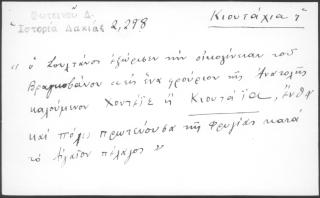 Φωτεινοῦ Δ.
Ἱστορία Δακίας 2,298
Κιουτάχια ἡ
" ὁ Σουλτάνος ἐξώρισεν τὴν οἰκογένειαν τοῦ
εἰς ἕνα φρούριον τῆς Ἀνατολῆς
καλούμενον ἢ Κιουτάϊα,
καὶ πόλις πρωτεύουσα τῆς Φρυγίας κατὰ
τὸ Αἰγαῖον πέλαγος "